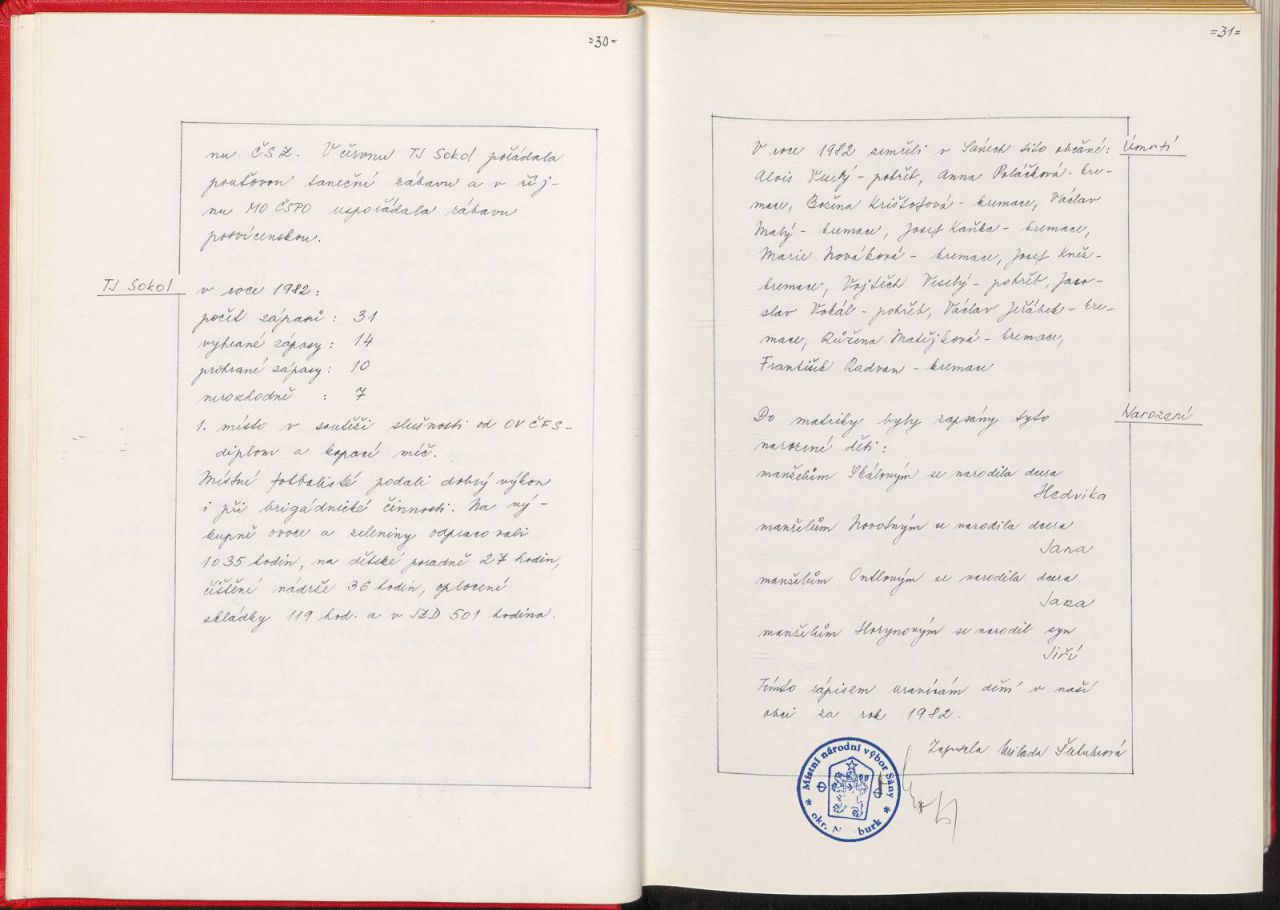 =30=
nu ČSŽ. V červnu TJ Sokol pořádala
pouťovou taneční zábavu a v říj-
nu MO ČSPO uspořádala zábavu
posvícenskou.
TJ Sokol
v roce 1982:
počet zápasů : 31
vyhrané zápasy : 14
prohrané zápasy : 10
nerozhodně : 7
1. místo v soutěži slušnosti od OV ČFS -
diplom a kopací míč.
Místní fotbalisté podali dobrý výkon
i při brigádnické činnosti. Na vý-
kupně ovoce a zeleniny odpracovali
1035 hodin, na dětské poradně 27 hodin,
čištění nádrže 36 hodin, oplocení
skládky 119 hod. a v JZD 501 hodina.
=31=
V roce 1982 zemřeli v Sánech tito občané:
Úmrtí
Alois Veselý - pohřeb, Anna Poláčková - kre-
mace, Božena Krištofová - kremace, Václav
Malý - kremace, Josef Kaňka - kremace,
Marie Nováková - kremace, Josef Kněz -
kremace, Vojtěch Veselý - pohřeb, Jaro-
slav Vokál - pohřeb, Václav Jeřábek - kre-
mace, Růžena Matějková - kremace,
František Radvan - kremace
Narození
Do matriky byly zapsány tyto
narozené děti :
manželům Skálovým se narodila dcera
Hedvika
manželům Novotným se narodila dcera
Jana
manželům se narodila dcera
Jana
manželům Horynovým se narodil syn
Jiří
Tímto zápisem uzavírám dění v naší
obci za rok 1982.
Zapsala Milada
Místní národní výbor Sány
okr. N burk